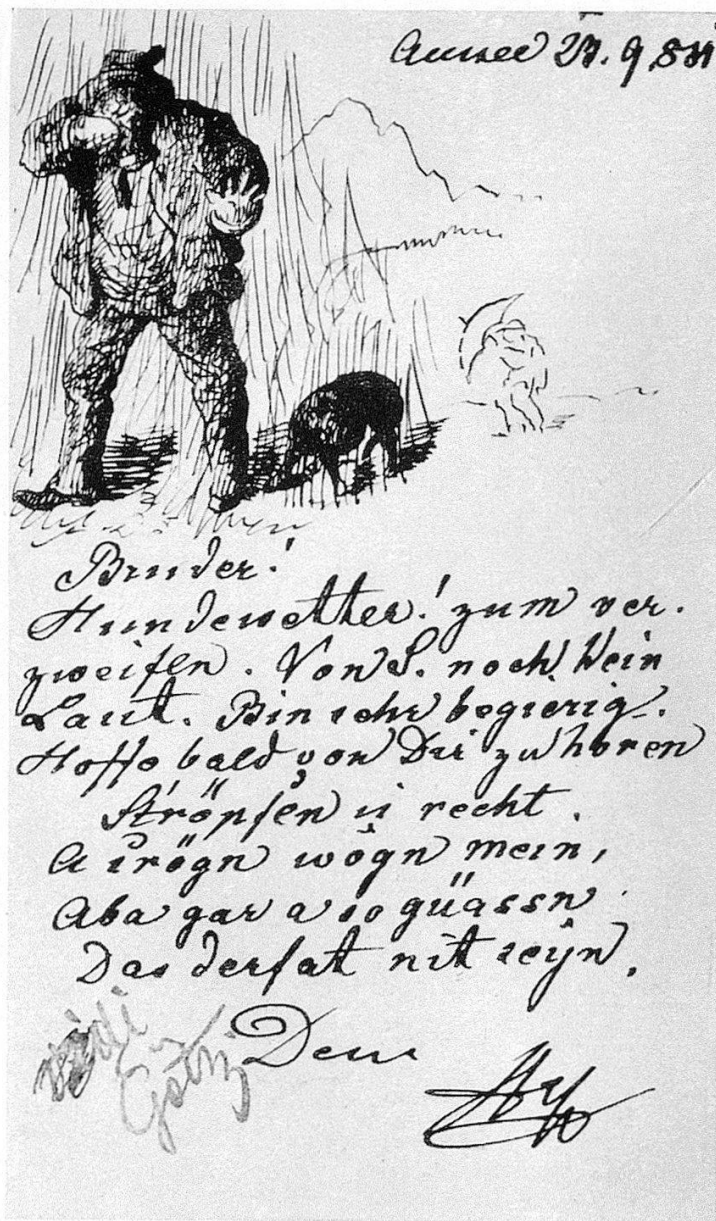 Aussee 27. 9. 8
Bruder!
Hundewetter! zum ver.
zweifen. Von S. noch kein
Laut. Bin sehr begierig.
Hoffe bald von Dir zu hören
Ströpfen is recht.
A irögn wögn mein,
Aba gar a so güassn
Das derfat nit seyn.
Dein
vidi
Götzi